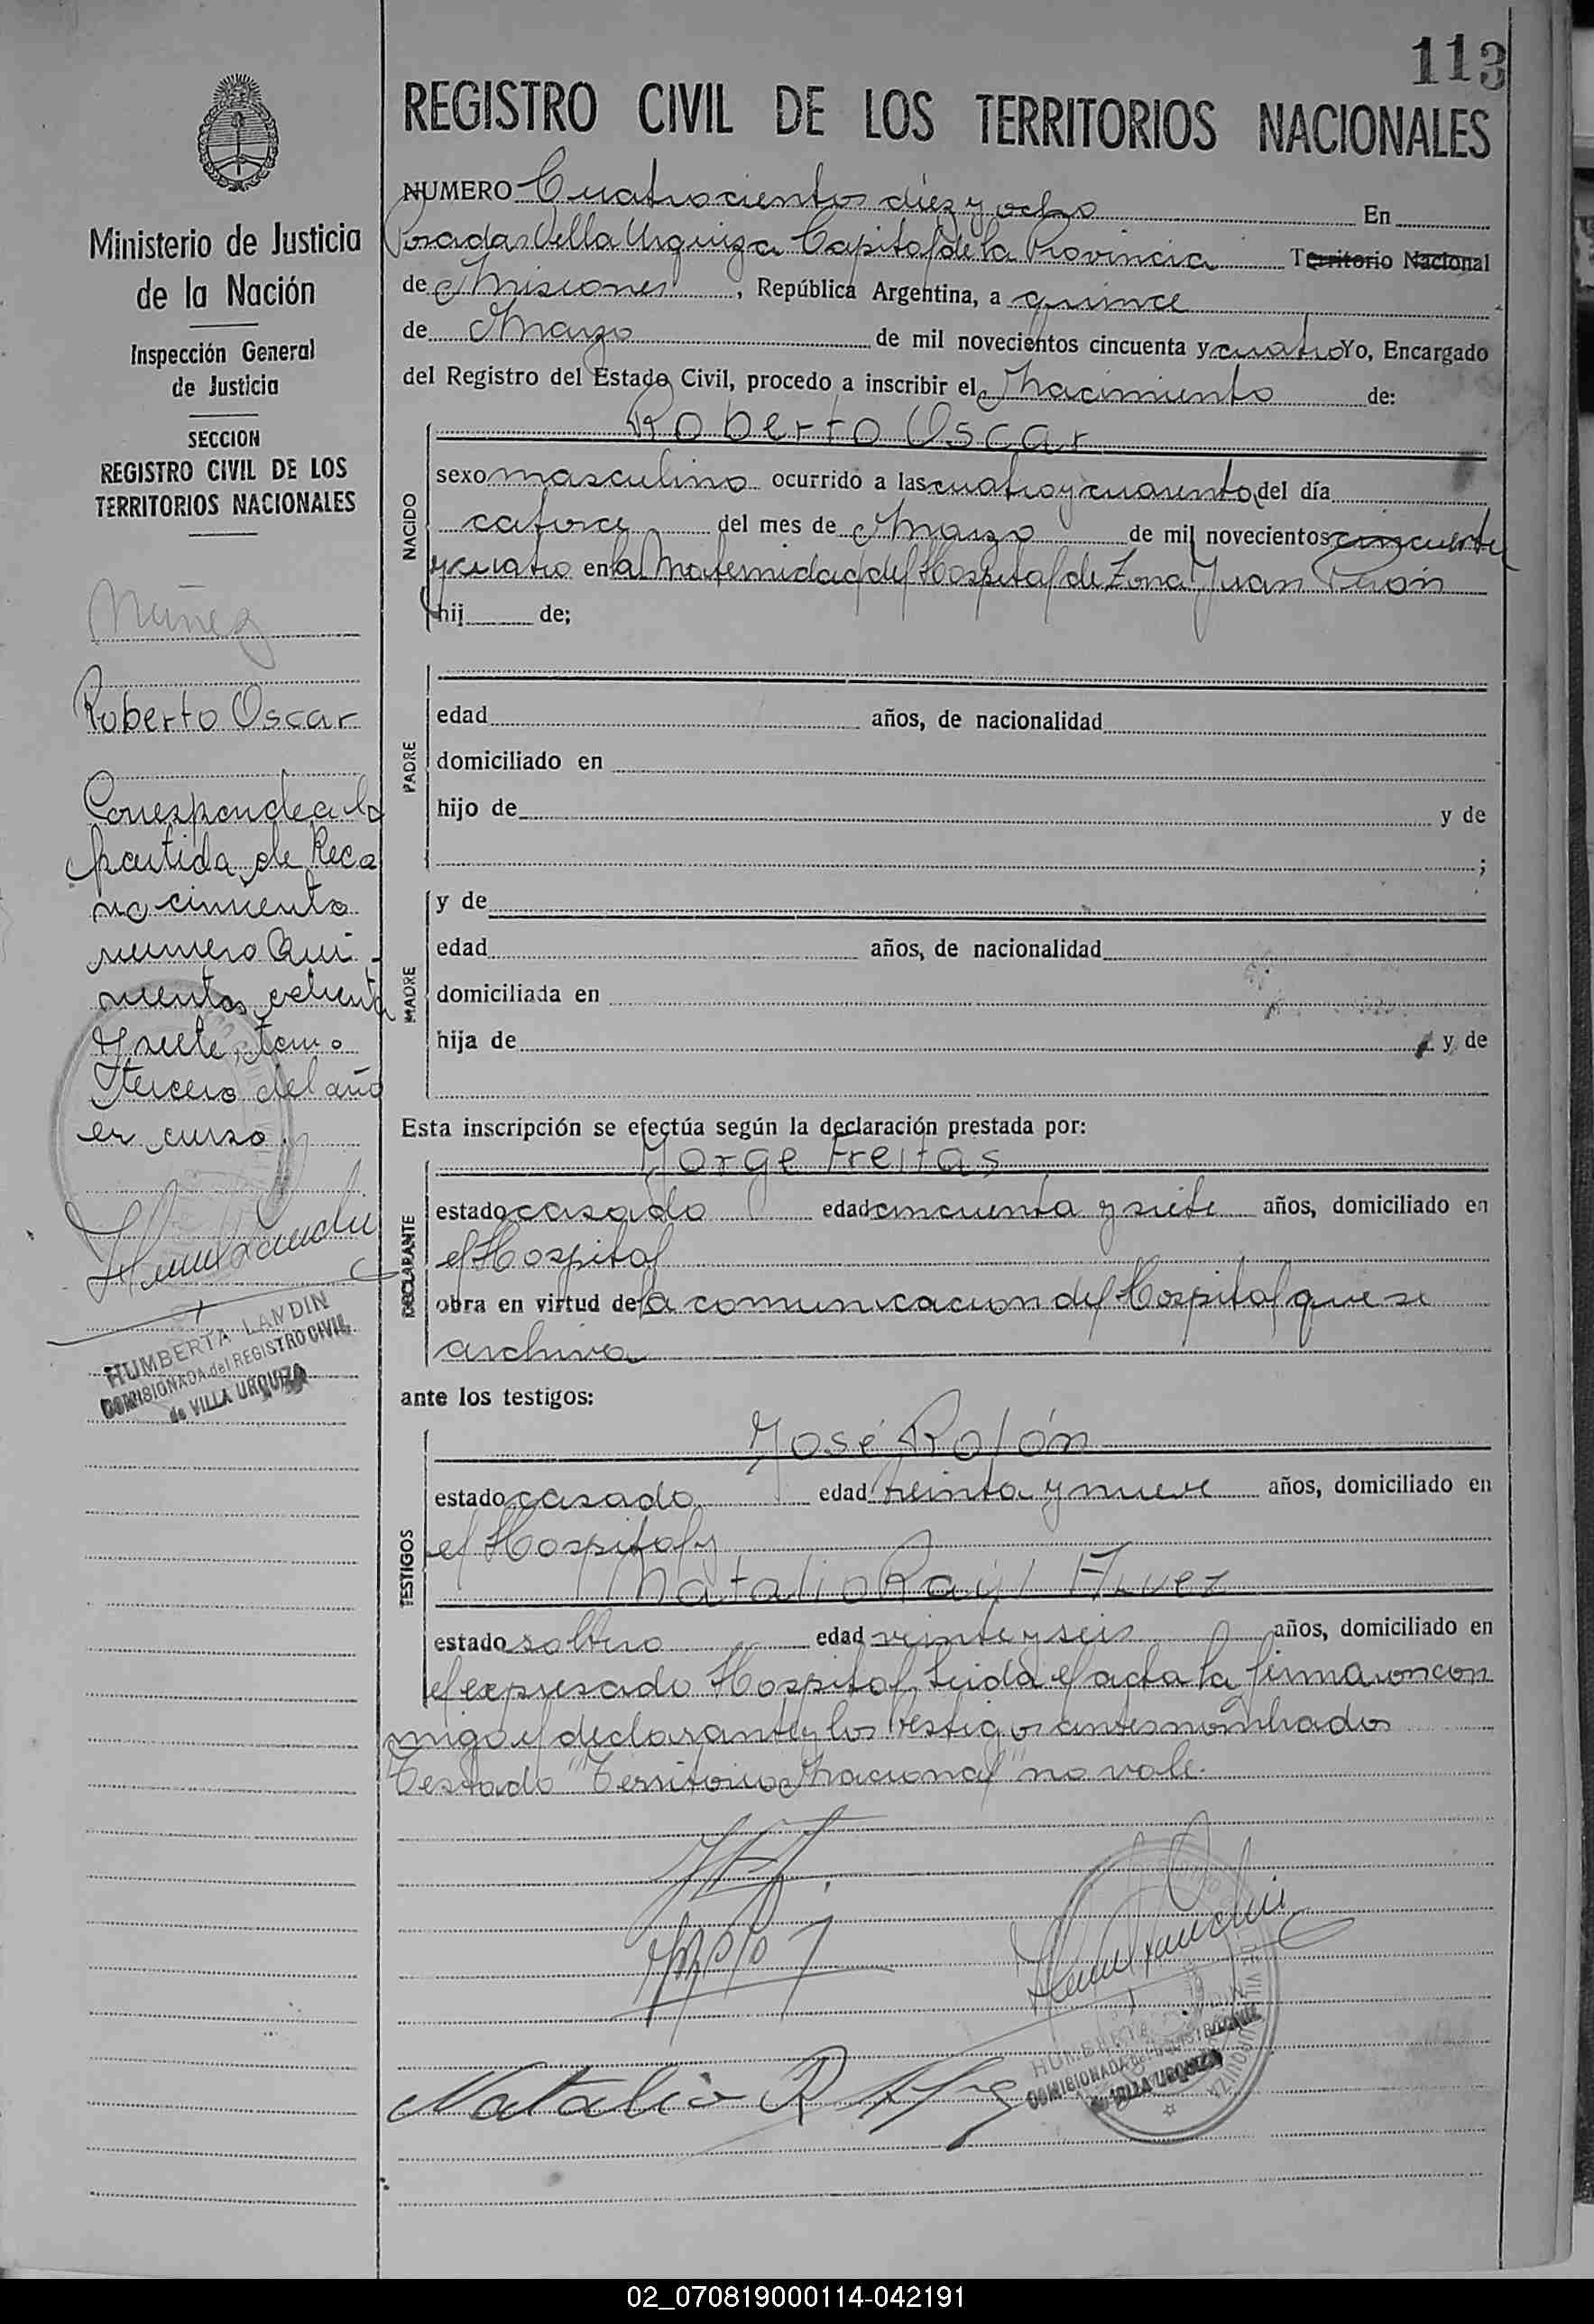 113
REGISTRO CIVIL DE LOS TERRITORIOS NACIONALES
Ministerio de Justicia
de la Nación
Inspección General
de Justicia
SECCION
REGISTRO CIVIL DE LOS
TERRITORIOS NACIONALES
Núñez
Roberto Oscar
Corresponde a la
partida de Reco
nocimiento
numero Qui-
nientos ochenta
y siete, tomo
tercero del año
en curso.
HUMBERTA LANDIN
COMISIONADA del REGISTRO CIVIL
de VILLA URQUIZA
NUMERO Cuatrocientos diez y ocho En
Posadas Villa Urquiza Capital de la Provincia Territorio Nacional
de Misiones, República Argentina, a quince
de Marzo de mil novecientos cincuenta y cuatro Yo, Encargado
del Registro del Estado Civil, procedo a inscribir el Nacimiento de:
NACIDO
Roberto Oscar
sexo masculino ocurrido a las cuatro y cuarenta del día
catorce del mes de Marzo de mil novecientos cincuenta
y cuatro en la Maternidad del Hospital de Zona Juan Perón
hij de;
PADRE
edad años, de nacionalidad
domiciliado en
hijo de y de
;
MADRE
y de
edad años, de nacionalidad
domiciliada en
hija de y de
Esta inscripción se efectúa según la declaración prestada por:
DECLARANTE
Jorge Freitas
estado casado edad cincuenta y siete años, domiciliado en
el Hospital
obra en virtud de la comunicacion del Hospital que se
archiva
ante los testigos:
TESTIGOS
José Rolón
estado casado edad treinta y nueve años, domiciliado en
el Hospital y
Natalio Raúl Alvez
estado soltero edad veinte y seis años, domiciliado en
el expresado Hospital. Leida el acta la firmaron con
migo el declarante y los testigos antes nombrados
Testado "Territorio Nacional" no vale.
Natalio R
HUMBERTA
COMISIONADA del REGISTRO CIVIL
de VILLA URQUIZA
02_070819000114-042191